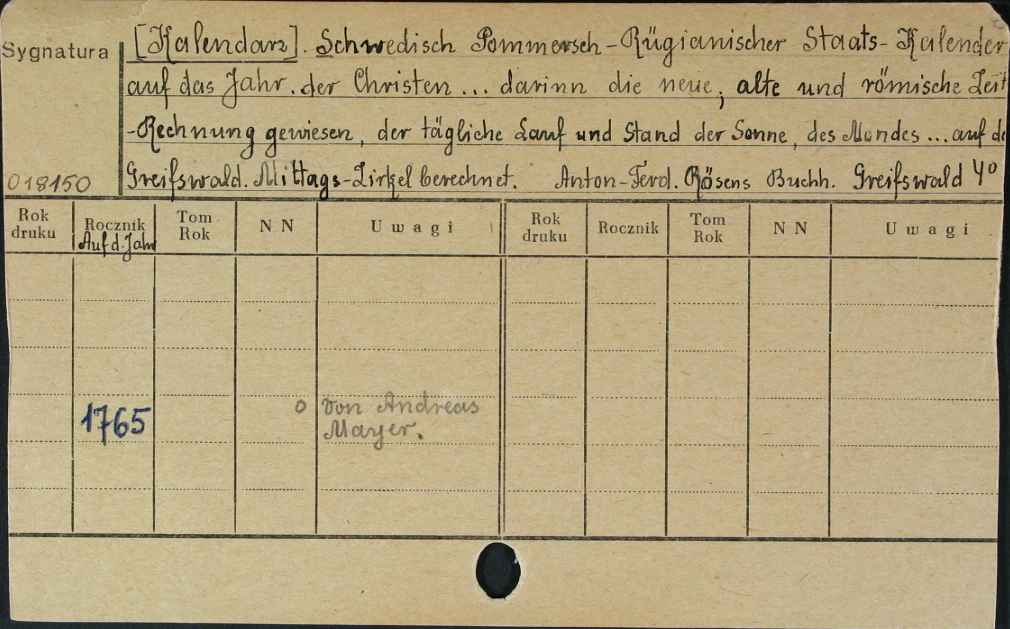 Sygnatura
[Kalendarz]. Schwedisch Pommersch-Rügianischer Staats-Kalender
auf das Jahr. der Christen... darinn die neue, alte und römische Zeit
-Rechnung gewiesen, der tägliche Lauf und Stand der Sonne, des Mondes... auf de
018150
Greifswald. Mittags-Zirkel berechnet. Anton-Ferd. Rösens Buchh. Greifswald 4°
Rok druku Rocznik Tom Rok N N Uwagi Rok druku Rocznik Tom Rok N N Uwagi
Auf d. Jahr
1765 0 von Andreas
Mayer.